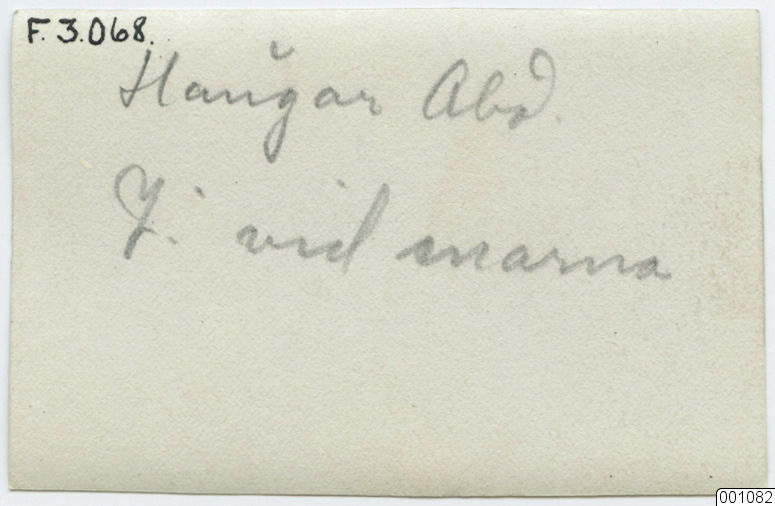 F. 3.068.
Haŭgar Abd.
J. vid snarna
001082